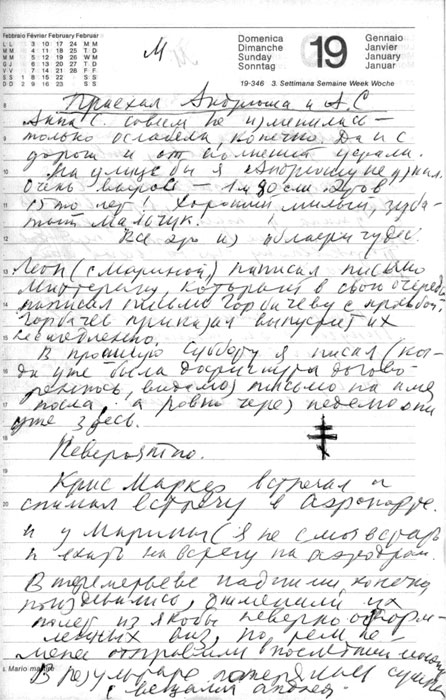 Febbraio Février February Februar
L L 3 10 17 24 M M
M M 4 11 18 25 D T
M M 5 12 19 26 M W
G J 6 13 20 27 D T
V V 7 14 21 28 F F
S S 1 8 15 22 S S
D D 2 9 16 23 S S
М
Domenica
Dimanche
Sunday
Sonntag
19
Gennaio
Janvier
January
Januar
19-346 3. Settimana Semaine Week Woche
Приехал Андрюша и А.С
Анна С совсем не изменилась —
только ослабела, конечно. Да и с
дороги и от волнений устали.
На улице бы я Андрюшу не узнал.
Очень вырос — 1 м 80 см. зубов
15-то лет! Хороший милый, зуба-
тый мальчик.
Все это из области чудес.
Леон (с Мариной) написал письмо
Миттерану, который в свою очередь
написал письмо Горбачеву с просьбой.
Горбачев приказал выпустить их
немедленно.
В прошлую субботу я писал (ког-
да уже была договоренность, видимо) письмо на имя
посла, а ровно через неделю они
уже здесь.
Невероятно.
Крис Маркер встречал и
снимал встречу в аэропорте.
и у Марины (я не смог встать
и ехать на встречу на аэродром.
В Шереметьеве падшими, конечно
поиздевались, отменили их
полет из якобы неверно оформ-
ленных виз, но тем не
менее отправили
В результате потерялся
с вещами